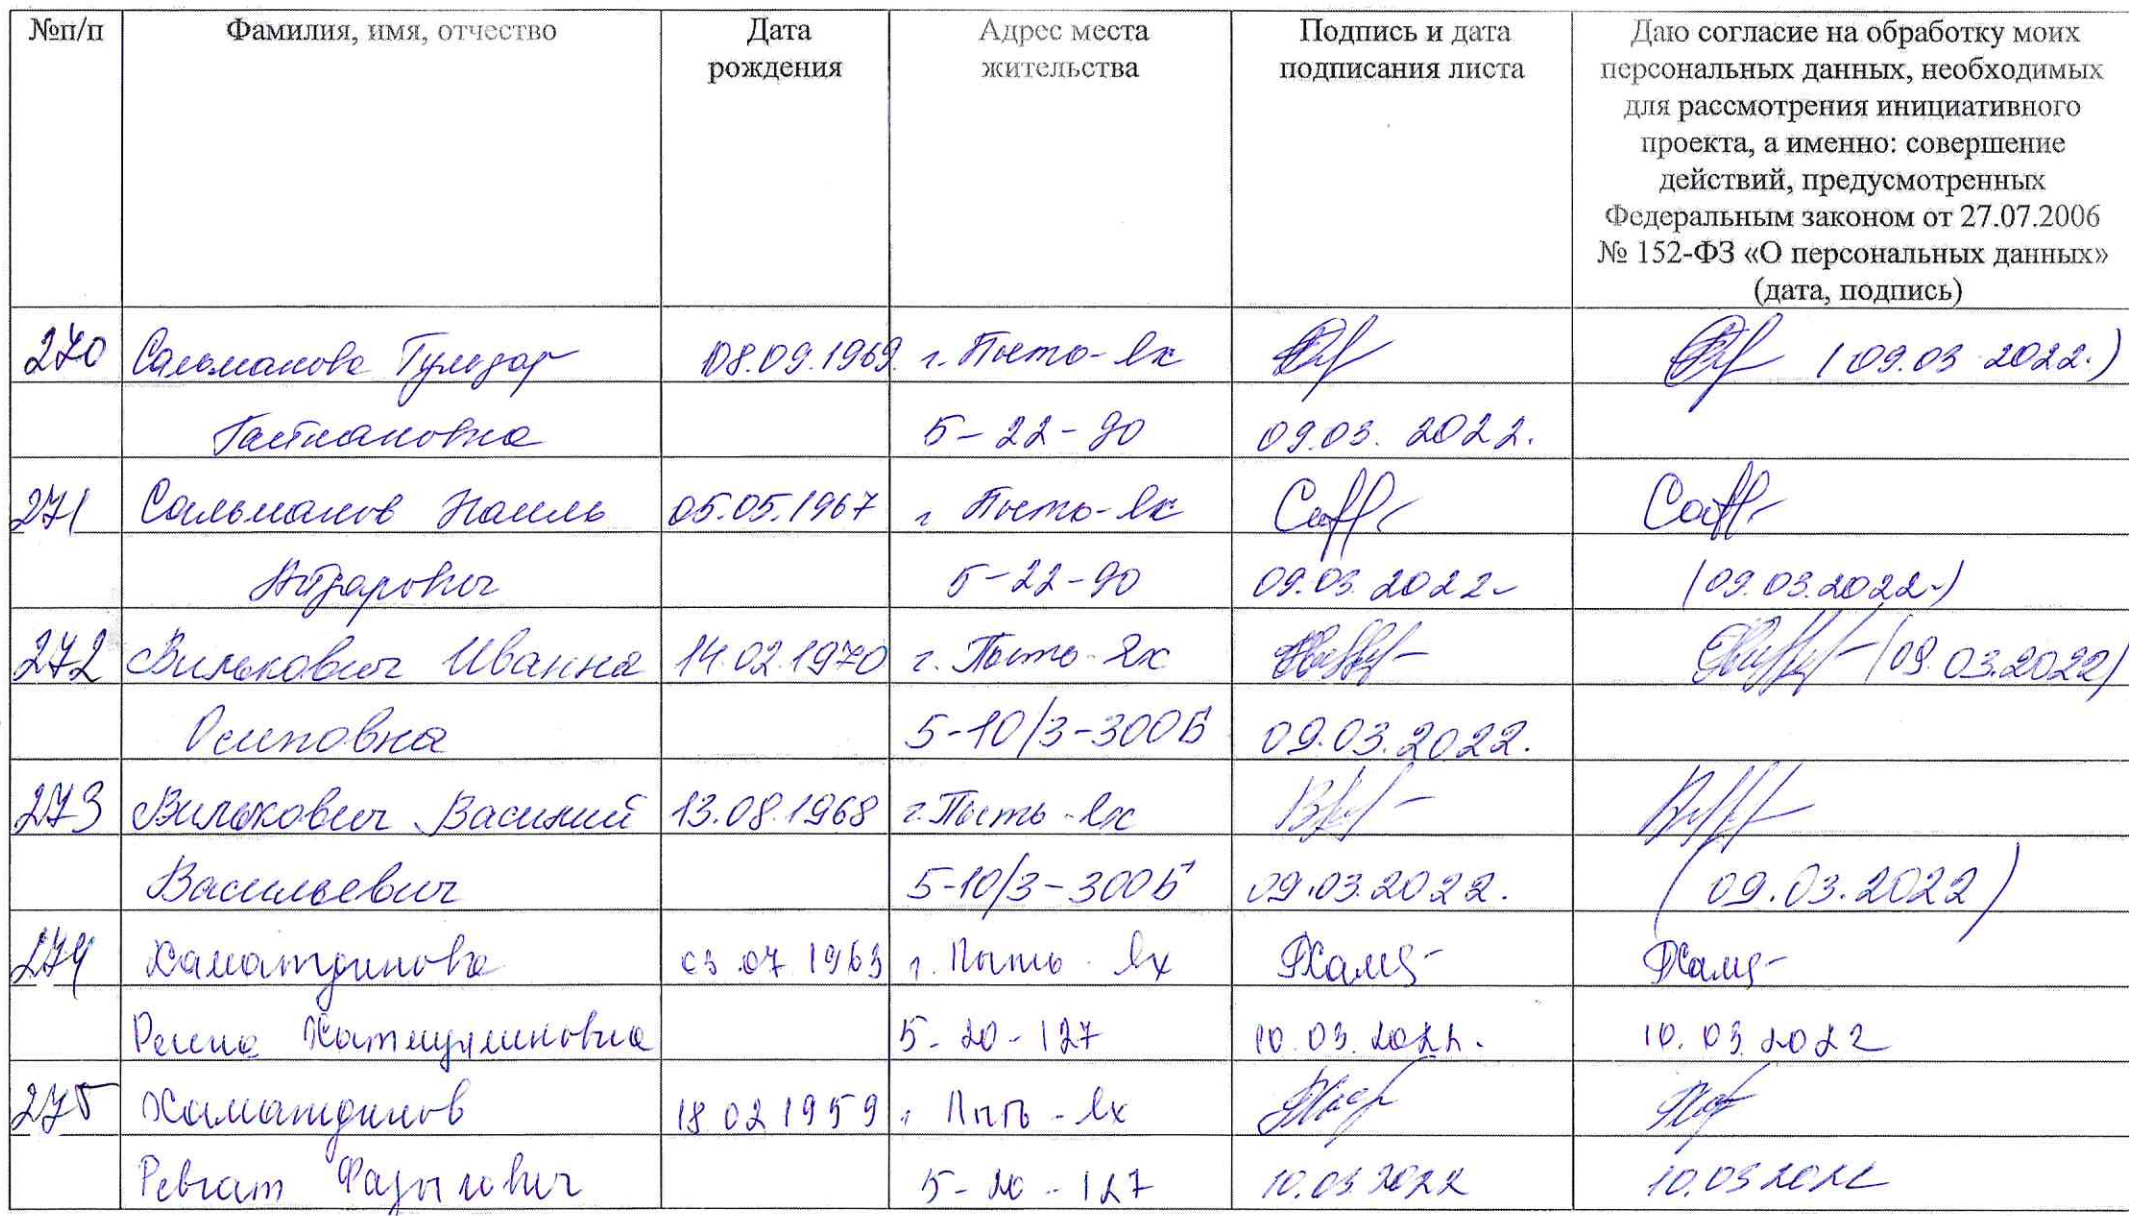 №п/п Фамилия, имя, отчество Дата рождения Адрес места жительства Подпись и дата подписания листа Даю согласие на обработку моих
персональных данных, необходимых
для рассмотрения инициативного
проекта, а именно: совершение
действий, предусмотренных
Федеральным законом от 27.07.2006
№ 152-ФЗ «О персональных данных»
(дата, подпись)
270 Сальманова Гульзар 08.09.1969. г. Пыть-Ях (09.03 2022.)
5-22-90 09.03. 2022.
271 Сальманов Наиль 05.05.1967 г Пыть-Ях
5-22-90 09.03.2022 (09.03.2022.)
272 Вилькович Иванна 14.02.1970 г. Пыть-Ях (09.03.2022)
Осиповна 5-10/3-300Б 09.03.2022.
273 Вилькович Василий 13.08.1968 г. Пыть-Ях
Васильевич 5-10/3-300Б 09.03.2022. (09.03.2022)
274 Хаматдинова 03.07 1963 г. Пыть-Ях
5-20-127 10.03.2022. 10.03.2022
275 Хаматдинов 18 02 1959 Пыть-Ях
Ревгат 5-20-127 10.03.2022 10.03 2022